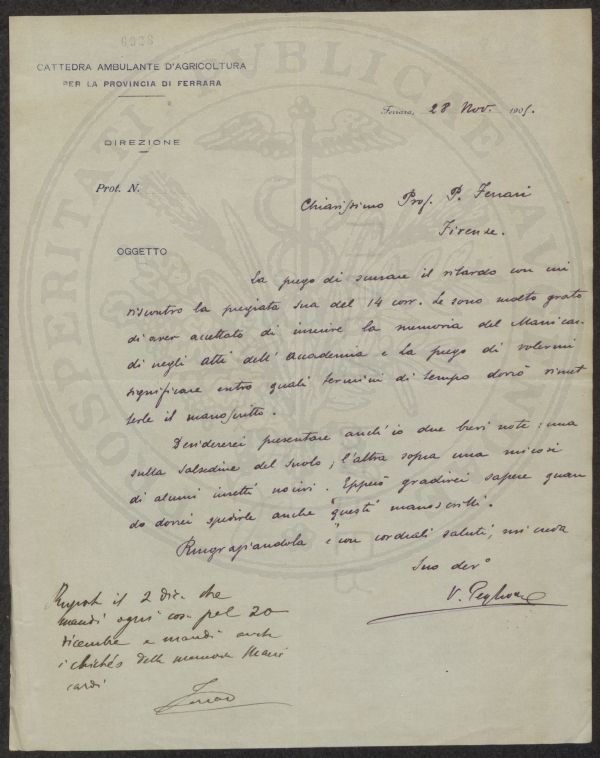 6938
CATTEDRA AMBULANTE D'AGRICOLTURA
PER LA PROVINCIA DI FERRARA
Ferrara, 28 Nov. 1905.
DIREZIONE
Prot. N.
Chiarissimo Prof. P. Ferrari
Firenze.
OGGETTO
La prego di scusare il ritardo con cui
riscontro la pregiata sua del 14 corr. Le sono molto grato
di aver accettato di inserire la memoria del Manicar
di negli atti dell'accademia e la prego di volermi
significare entro quali termini di tempo dovrò rimet
terle il manoscritto.
Desidererei presentare anch'io due brevi note: una
sulla salsedine del suolo; l'altra sopra una micosi
di alcuni insetti nocivi. Epperò gradirei sapere quan
do dovrei spedirle anche questi manoscritti.
Ringraziandola e con cordiali saluti, mi creda
Suo dev°
V. Peglion
il 2 dic. che
mandi ogni cosa pel 20
dicembre e mandi anche
i clichés della memoria Mani
cardi
Ferrari